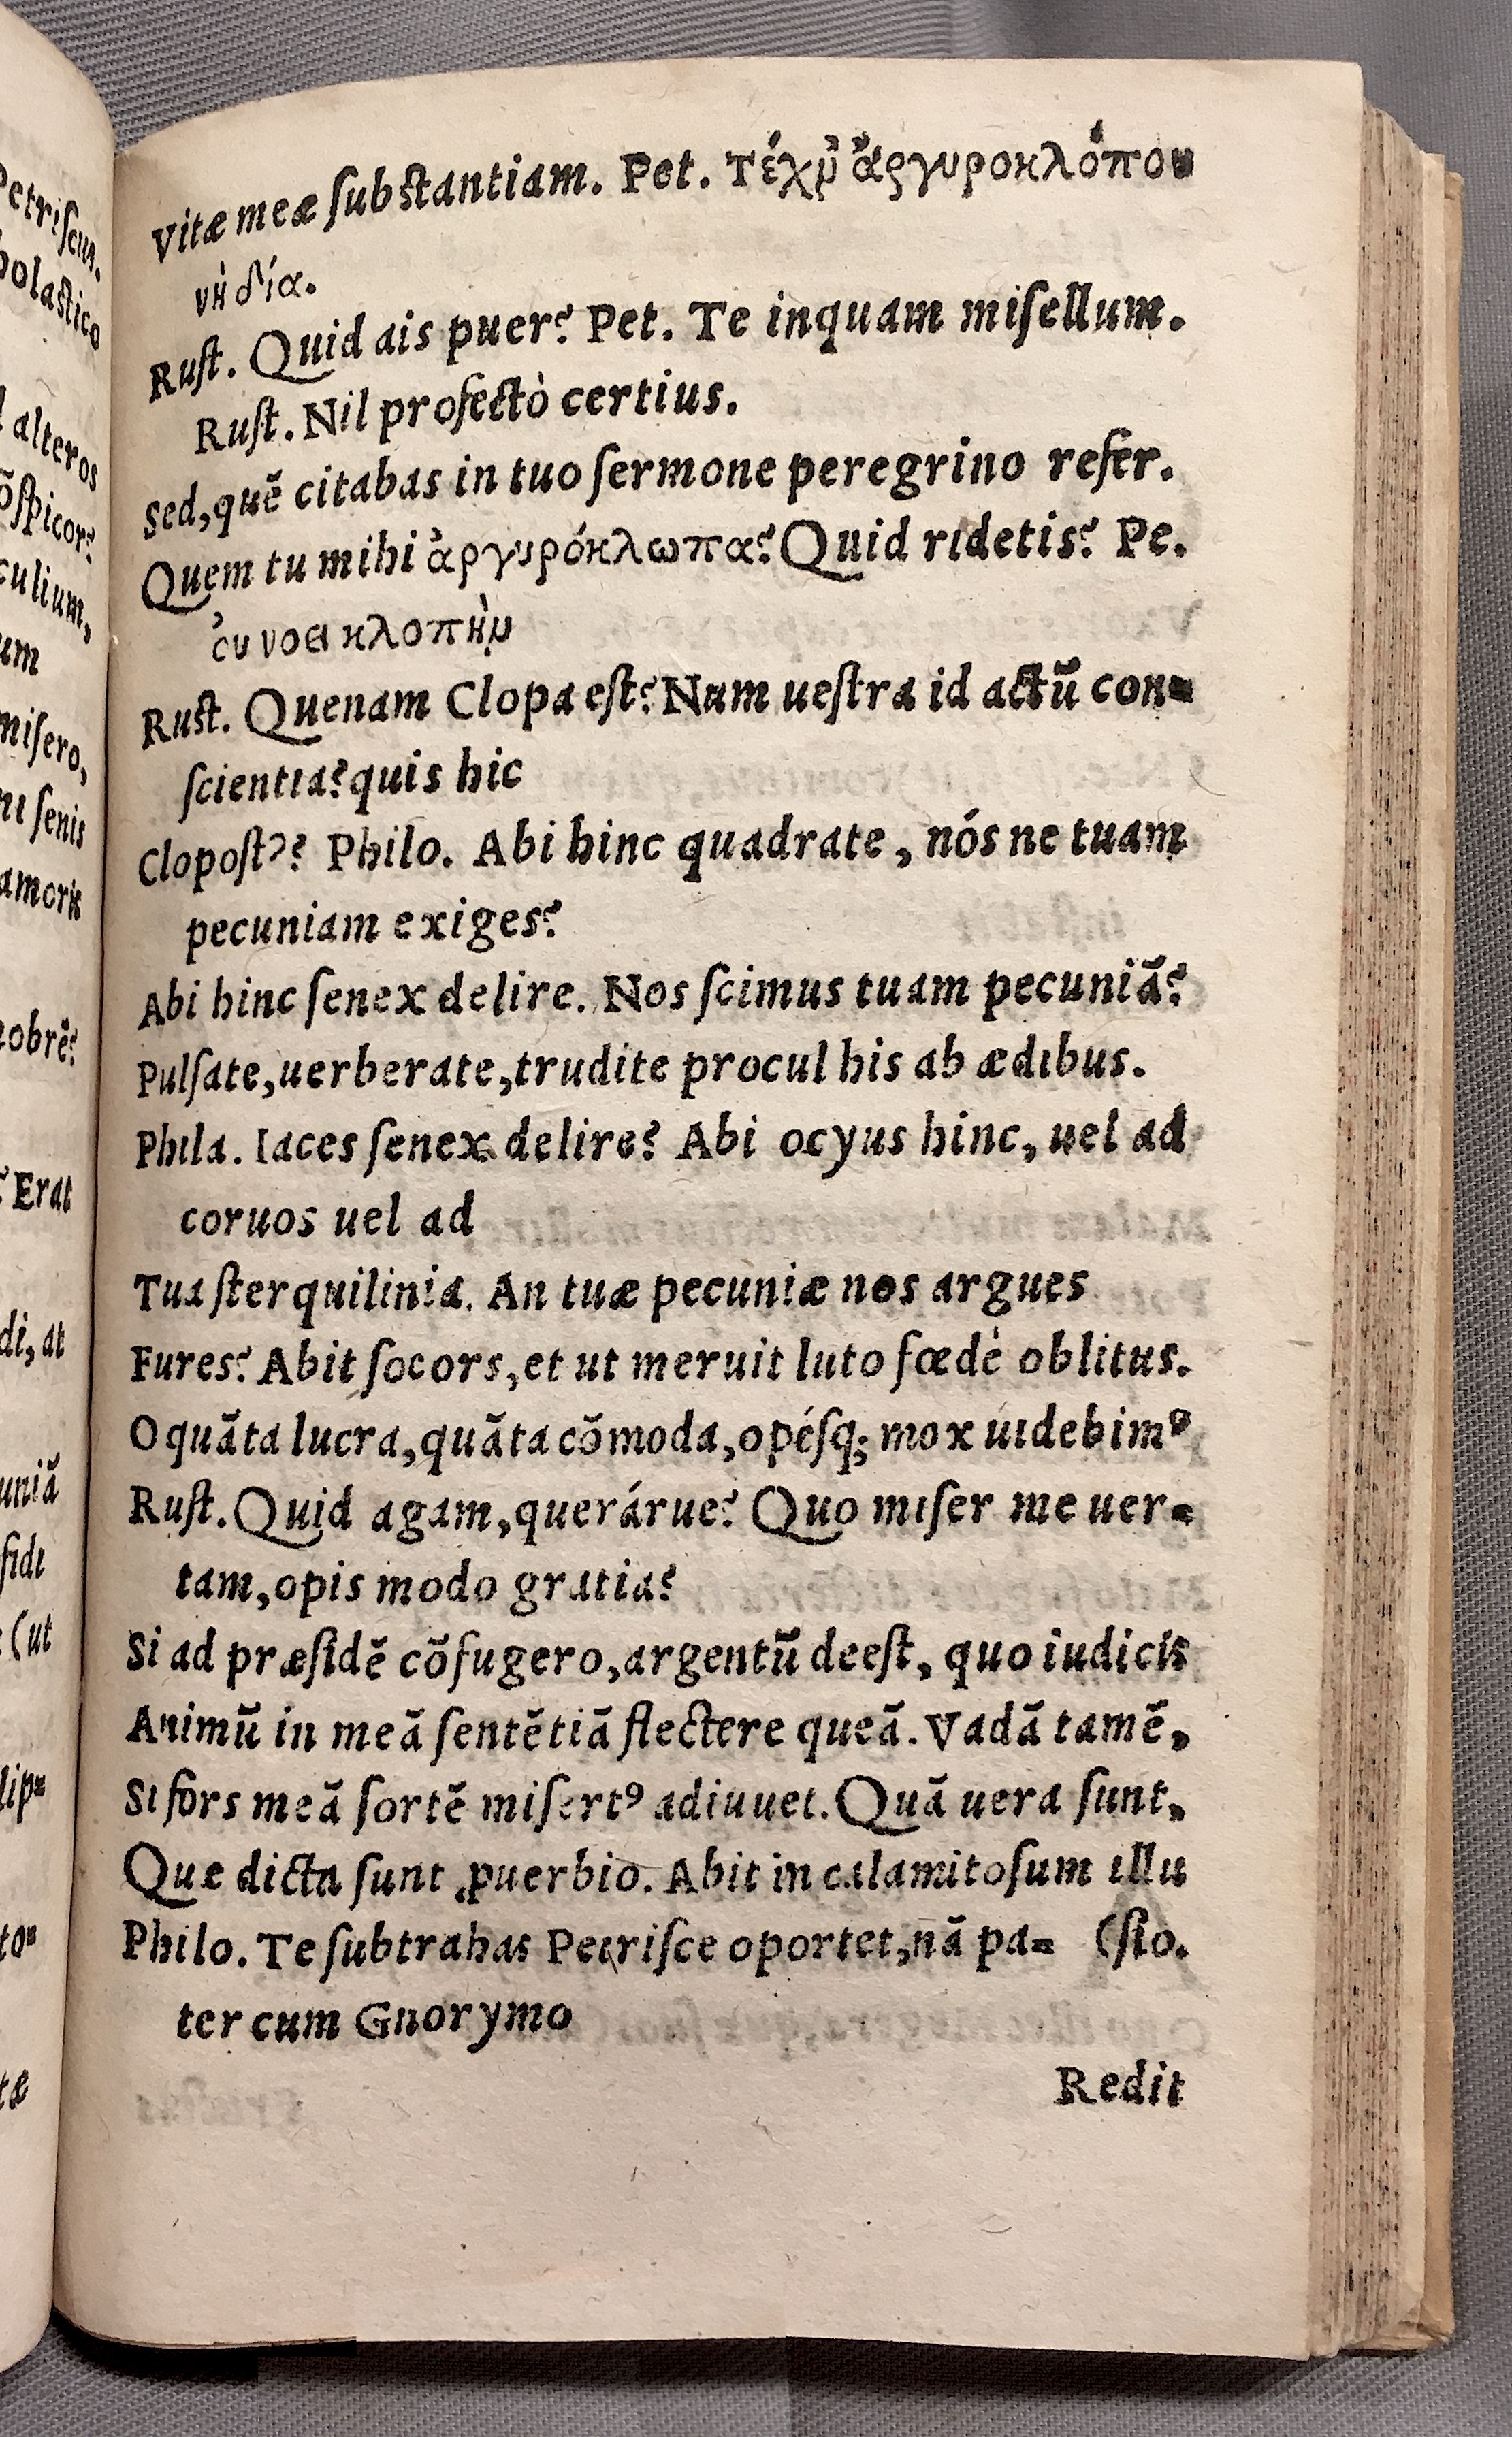 Petriſcus.
Vitæ meæ ſubſtantiam. Pet. τέχν ἀργυροκλόπου
νὴ δία.
Ruſt. Quid ais puer? Pet. Te inquam miſellum.
Ruſt. Nil profectò certius.
Sed, quẽ citabas in tuo ſermone peregrino refer.
Quem tu mihi ἀργυρόκλωπα? Quid ridetis? Pe.
συνοει κλοπὴν
Ruſt. Quenam Clopa eſt? Num ueſtra id actũ con=
ſcientia? quis hic
Clopoſtꝰ? Philo. Abi hinc quadrate, nós ne tuam
pecuniam exiges?
Abi hinc ſenex delire. Nos ſcimus tuam pecuniã?
Pulſate, uerberate, trudite procul his ab ædibus.
Phila. Iaces ſenex delire? Abi ocyus hinc, uel ad
coruos uel ad
Tua ſterquilinia. An tuæ pecuniæ nos argues
Fures? Abit ſocors, et ut meruit luto fœdè oblitus.
O quãta lucra, quãta cõmoda, opéſq; mox uidebimꝰ
Ruſt. Quid agam, querárue? Quo miſer me uer=
tam, opis modo gratia?
Si ad præſidẽ cõfugero, argentũ deeſt, quo iudicis
Animũ in meã ſentẽtiã flectere queã. Vadã tamẽ,
Si fors meã ſortẽ miſertꝰ adiuuet. Quã uera ſunt,
Que dicta ſunt ꝓuerbio. Abit in calamitoſum illu
Philo. Te ſubtrahas Petriſce oportet, nã pa= (ſto.
ter cum Gnorymo
Redit